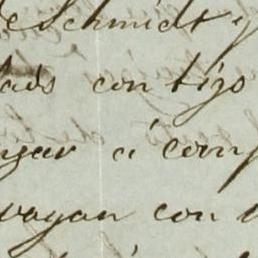 Schmidt y
lais con tigo
gar á com
vayan con